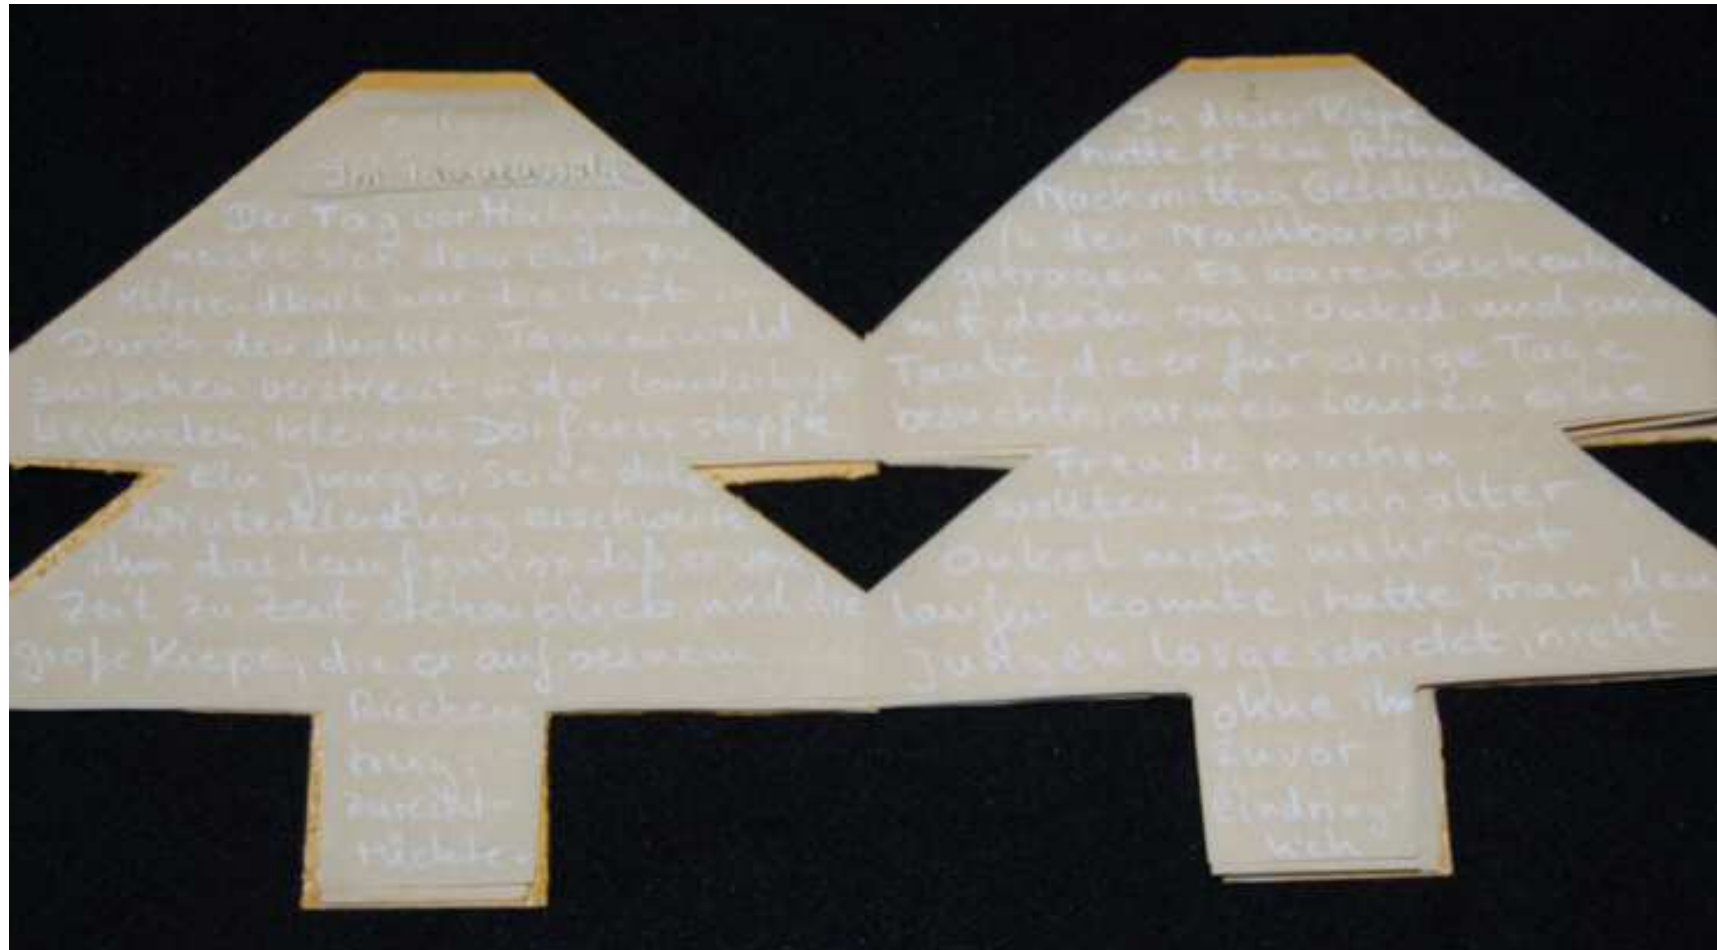 Im Tannenwald
Der Tag vor Heiligabend
neigte sich dem Ende zu.
Klirrendkalt war die Luft
Durch den dunklen Tannenwald
zwischen verstreut in der Landschaft
liegenden, kleinen Dörfern stapfte
ein Junge, seine dicke
Winterkleidung erschwerte
ihm das Laufen, so daß er von
Zeit zu Zeit stehenblieb und die
große Kiepe, die er auf seinem
Rücken
trug,
zurecht-
rückte.
2
In dieser Kiepe
hatte er am frühen
Nachmittag Geschenke
in den Nachbarort
getragen. Es waren Geschenke,
mit denen sein Onkel und seine
Tante, die er für einige Tage
besuchte, armen Leuten eine
Freude machen
wollten. Da sein alter
Onkel nicht mehr gut
laufen konnte, hatte man den
Jungen losgeschickt, nicht
ohne ihn
zuvor
eindring-
lich